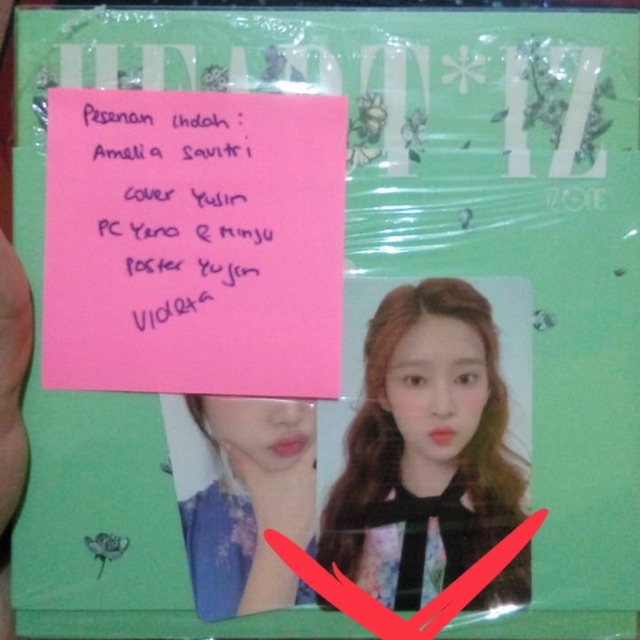 HEART*IZ
IZ*ONE
Pesenan Indah :
Amelia Savitri
Cover Yujin
PC Yena & Minju
Poster Yujin
Violeta